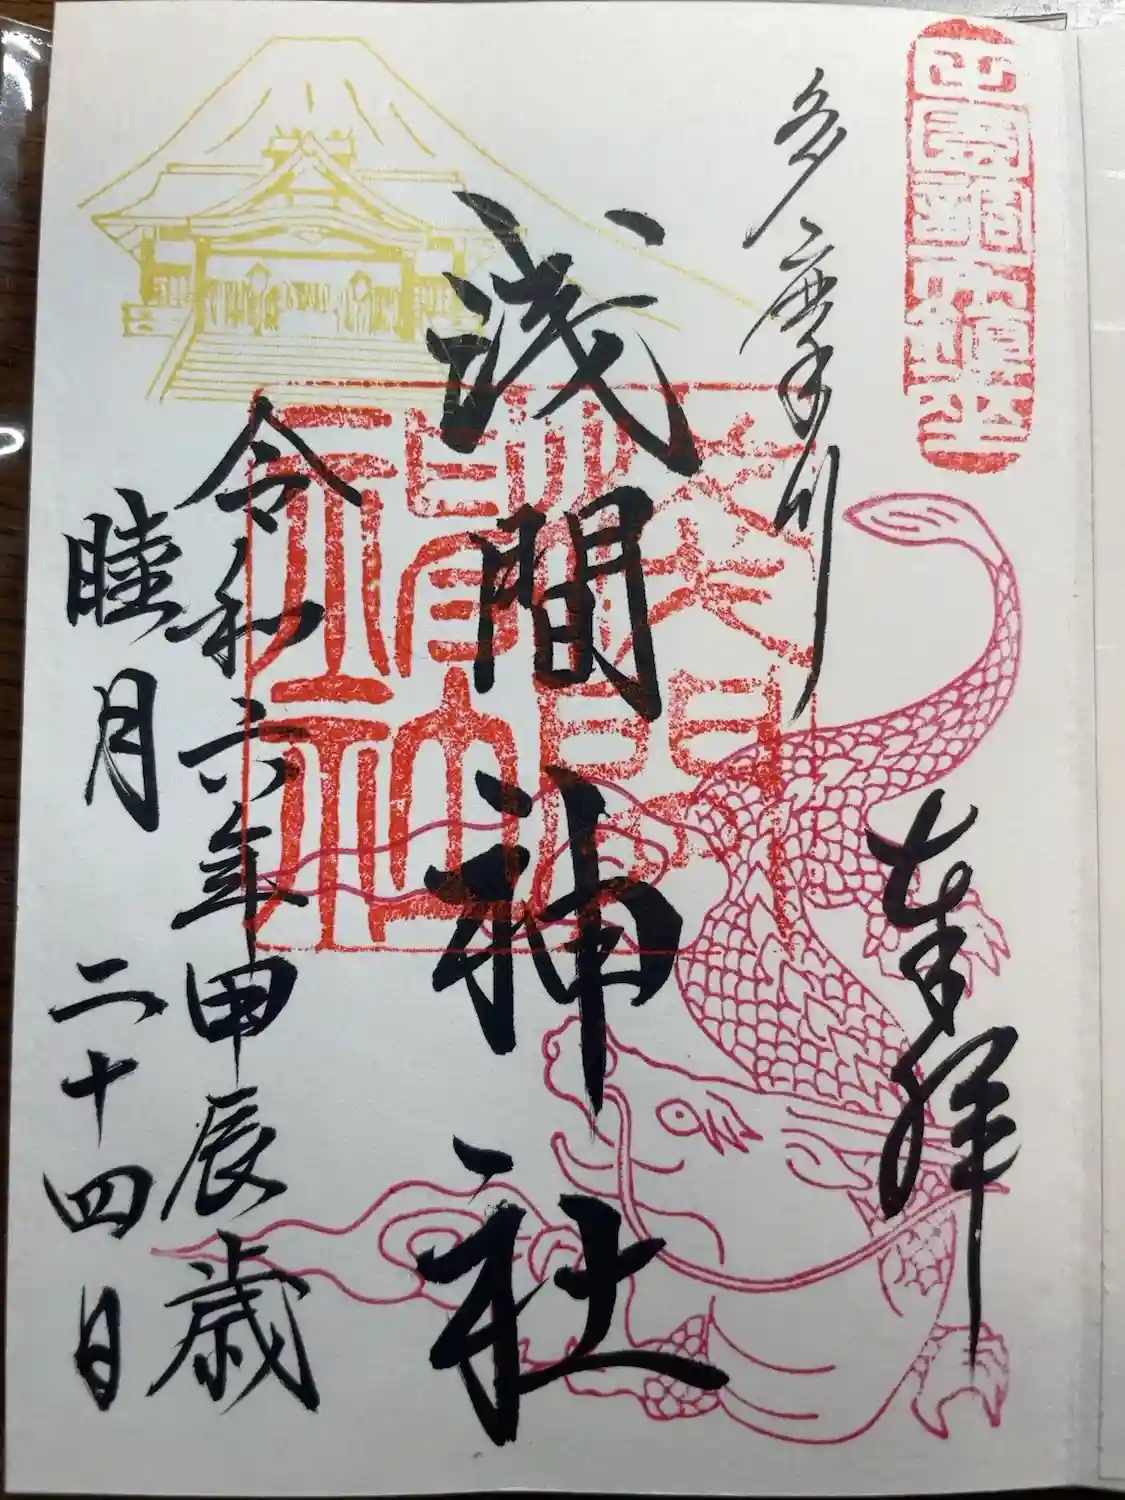 多摩川
奉拝
浅間神社
令和六年甲辰歳
睦月 二十四日